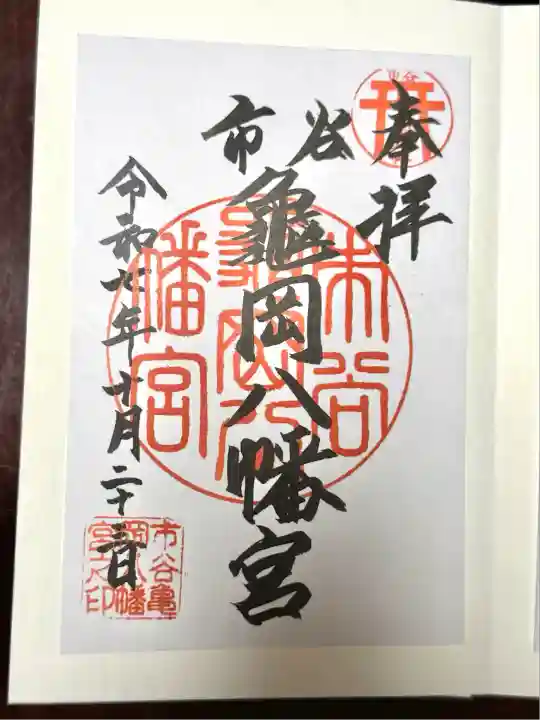 奉拝
市谷
龜岡八幡宮
令和七年十月二十三日
市谷
龜岡八
幡宮
市谷亀
岡八幡
宮之印